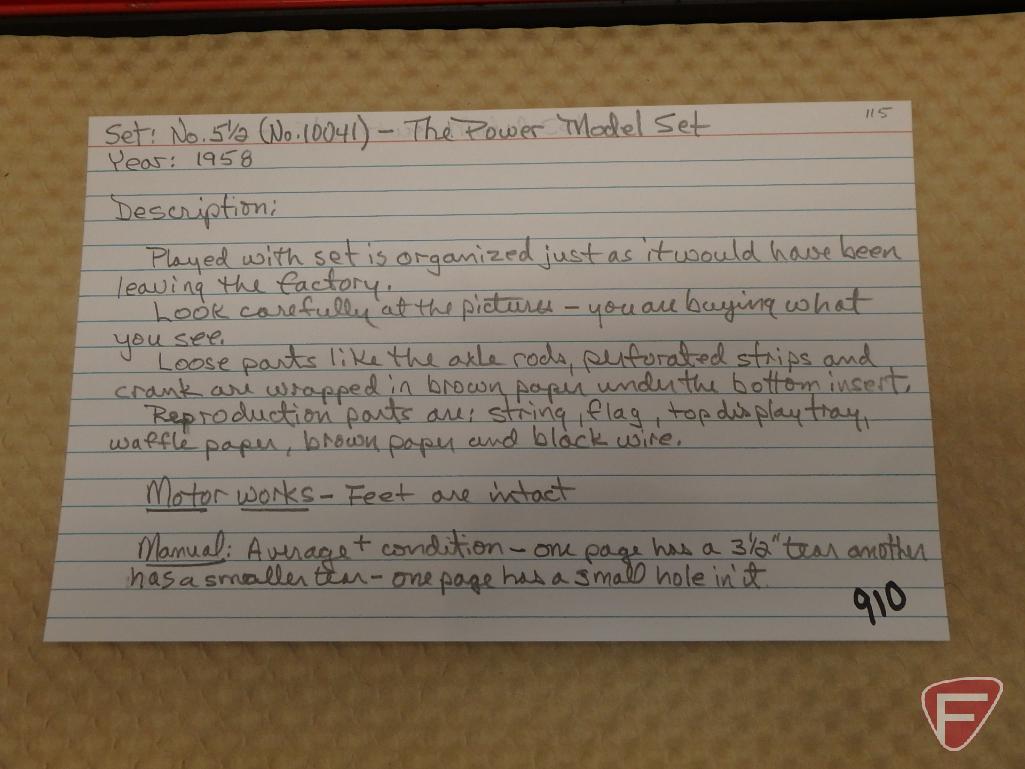 115
Set: No. 5½ (No. 10041) - The Power Model Set
Year: 1958
Description:
Played with set is organized just as it would have been
leaving the factory.
Look carefully at the pictures - you are buying what
you see.
Loose parts like the axle rods, perforated strips and
crank are wrapped in brown paper under the bottom insert.
Reproduction parts are: string, flag, top display tray,
waffle paper, brown paper and black wire.
Motor works - Feet are intact
Manual: Average + condition - one page has a 3½" tear another
has a smaller tear - one page has a small hole in it
910
F